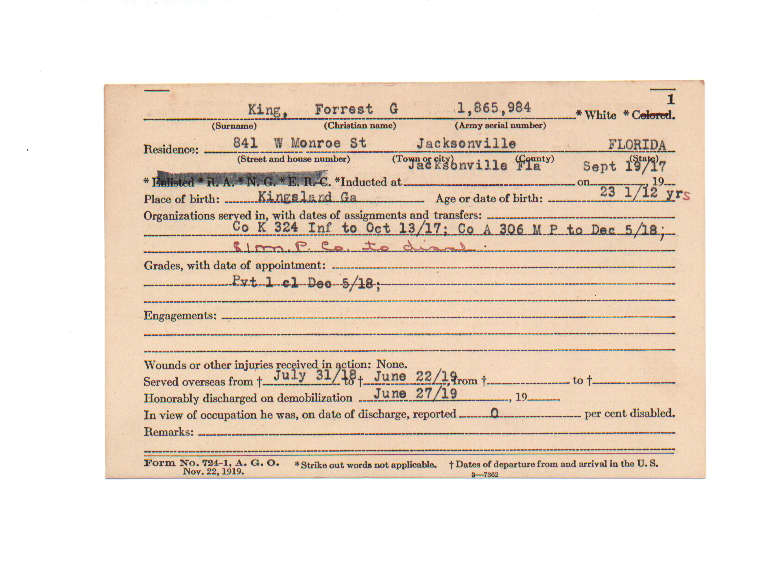 1
King, Forrest G 1,865,984 * White * Colored.
(Surname) (Christian name) (Army serial number)
Residence: 841 W Monroe St Jacksonville FLORIDA
(Street and house number) (Town or city) (County) (State)
Jacksonville Fla Sept 19/17
* Enlisted * R. A. * N. G. * E. R. C. *Inducted at on , 19
Place of birth: Kingsland Ga Age or date of birth: 23 1/12 yrs
Organizations served in, with dates of assignments and transfers:
Co K 324 Inf to Oct 13/17; Co A 306 M P to Dec 5/18;
M. P. Co. to disch
Grades, with date of appointment:
Pvt 1 cl Dec 5/18;
Engagements:
Wounds or other injuries received in action: None.
Served overseas from † July 31/18 to † June 22/19, from † to †
Honorably discharged on demobilization June 27/19 , 19
In view of occupation he was, on date of discharge, reported 0 per cent disabled.
Remarks:
Form No. 724-1, A. G. O. * Strike out words not applicable. † Dates of departure from and arrival in the U. S.
Nov. 22, 1919. 3—7362